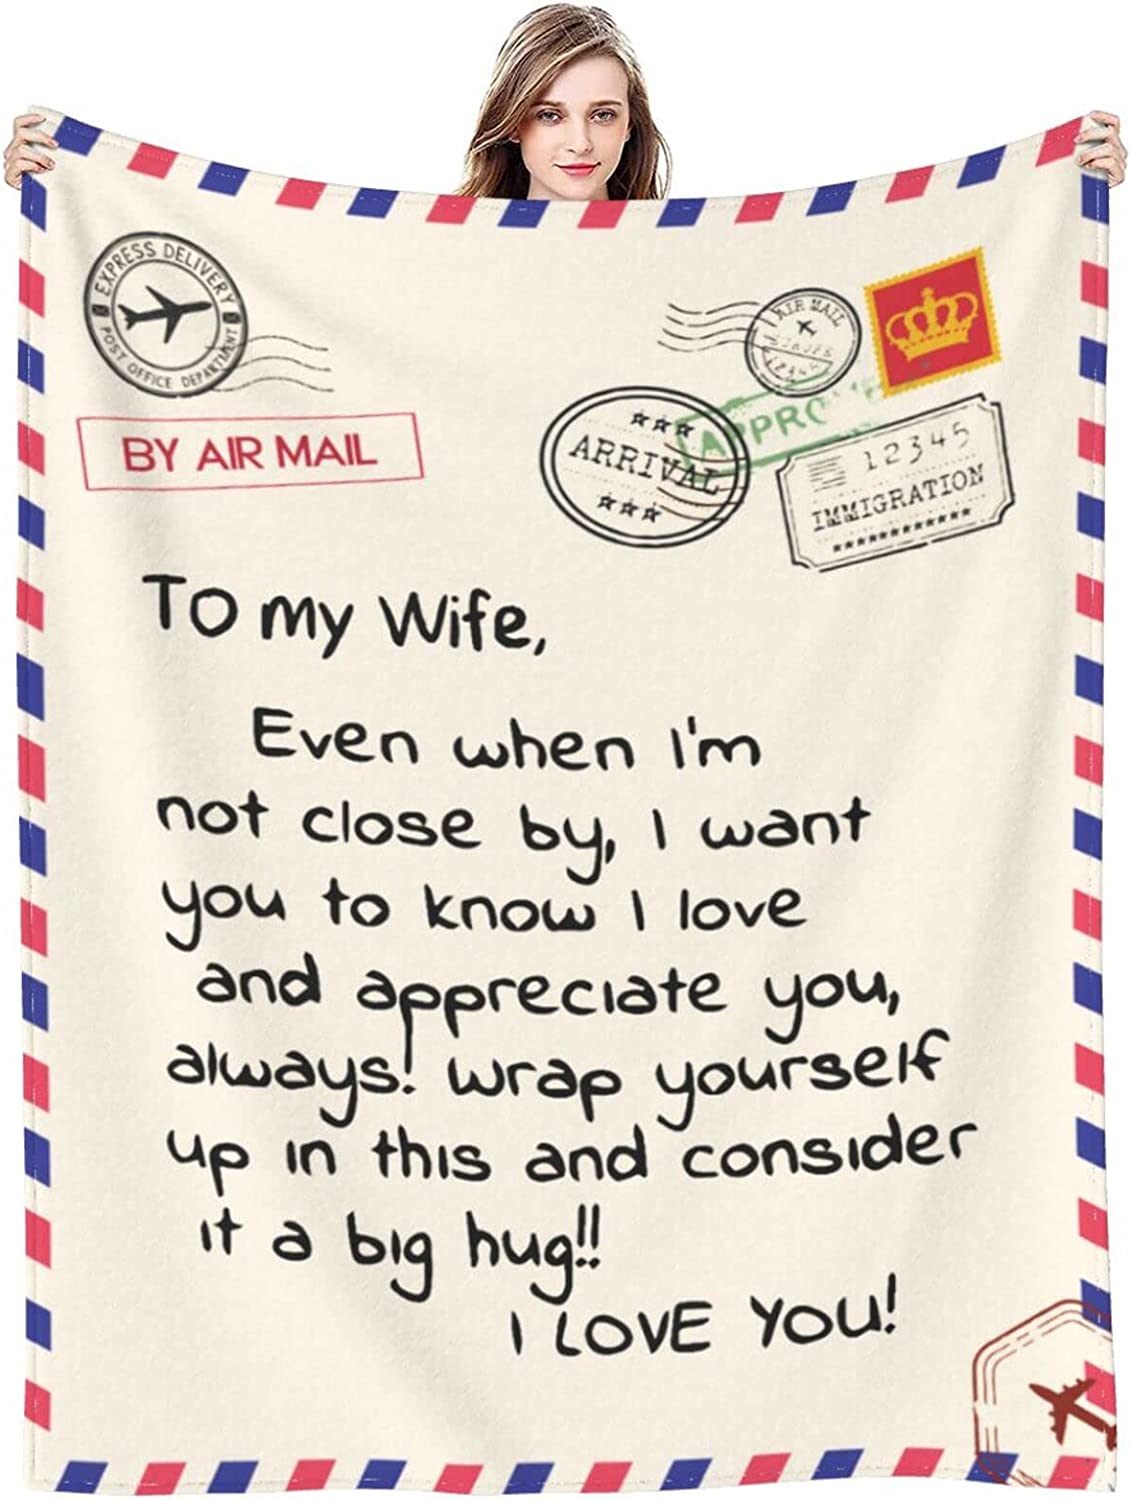 EXPRESS DELIVERY
POST OFFICE DEPARTMENT
BY AIR MAIL
AIR MAIL
12345
ARRIVAL
12345
IMMIGRATION
To my Wife,
Even when I'm
not close by, I want
you to know I love
and appreciate you,
always! wrap yourself
up in this and consider
it a big hug!!
I LOVE YOU!